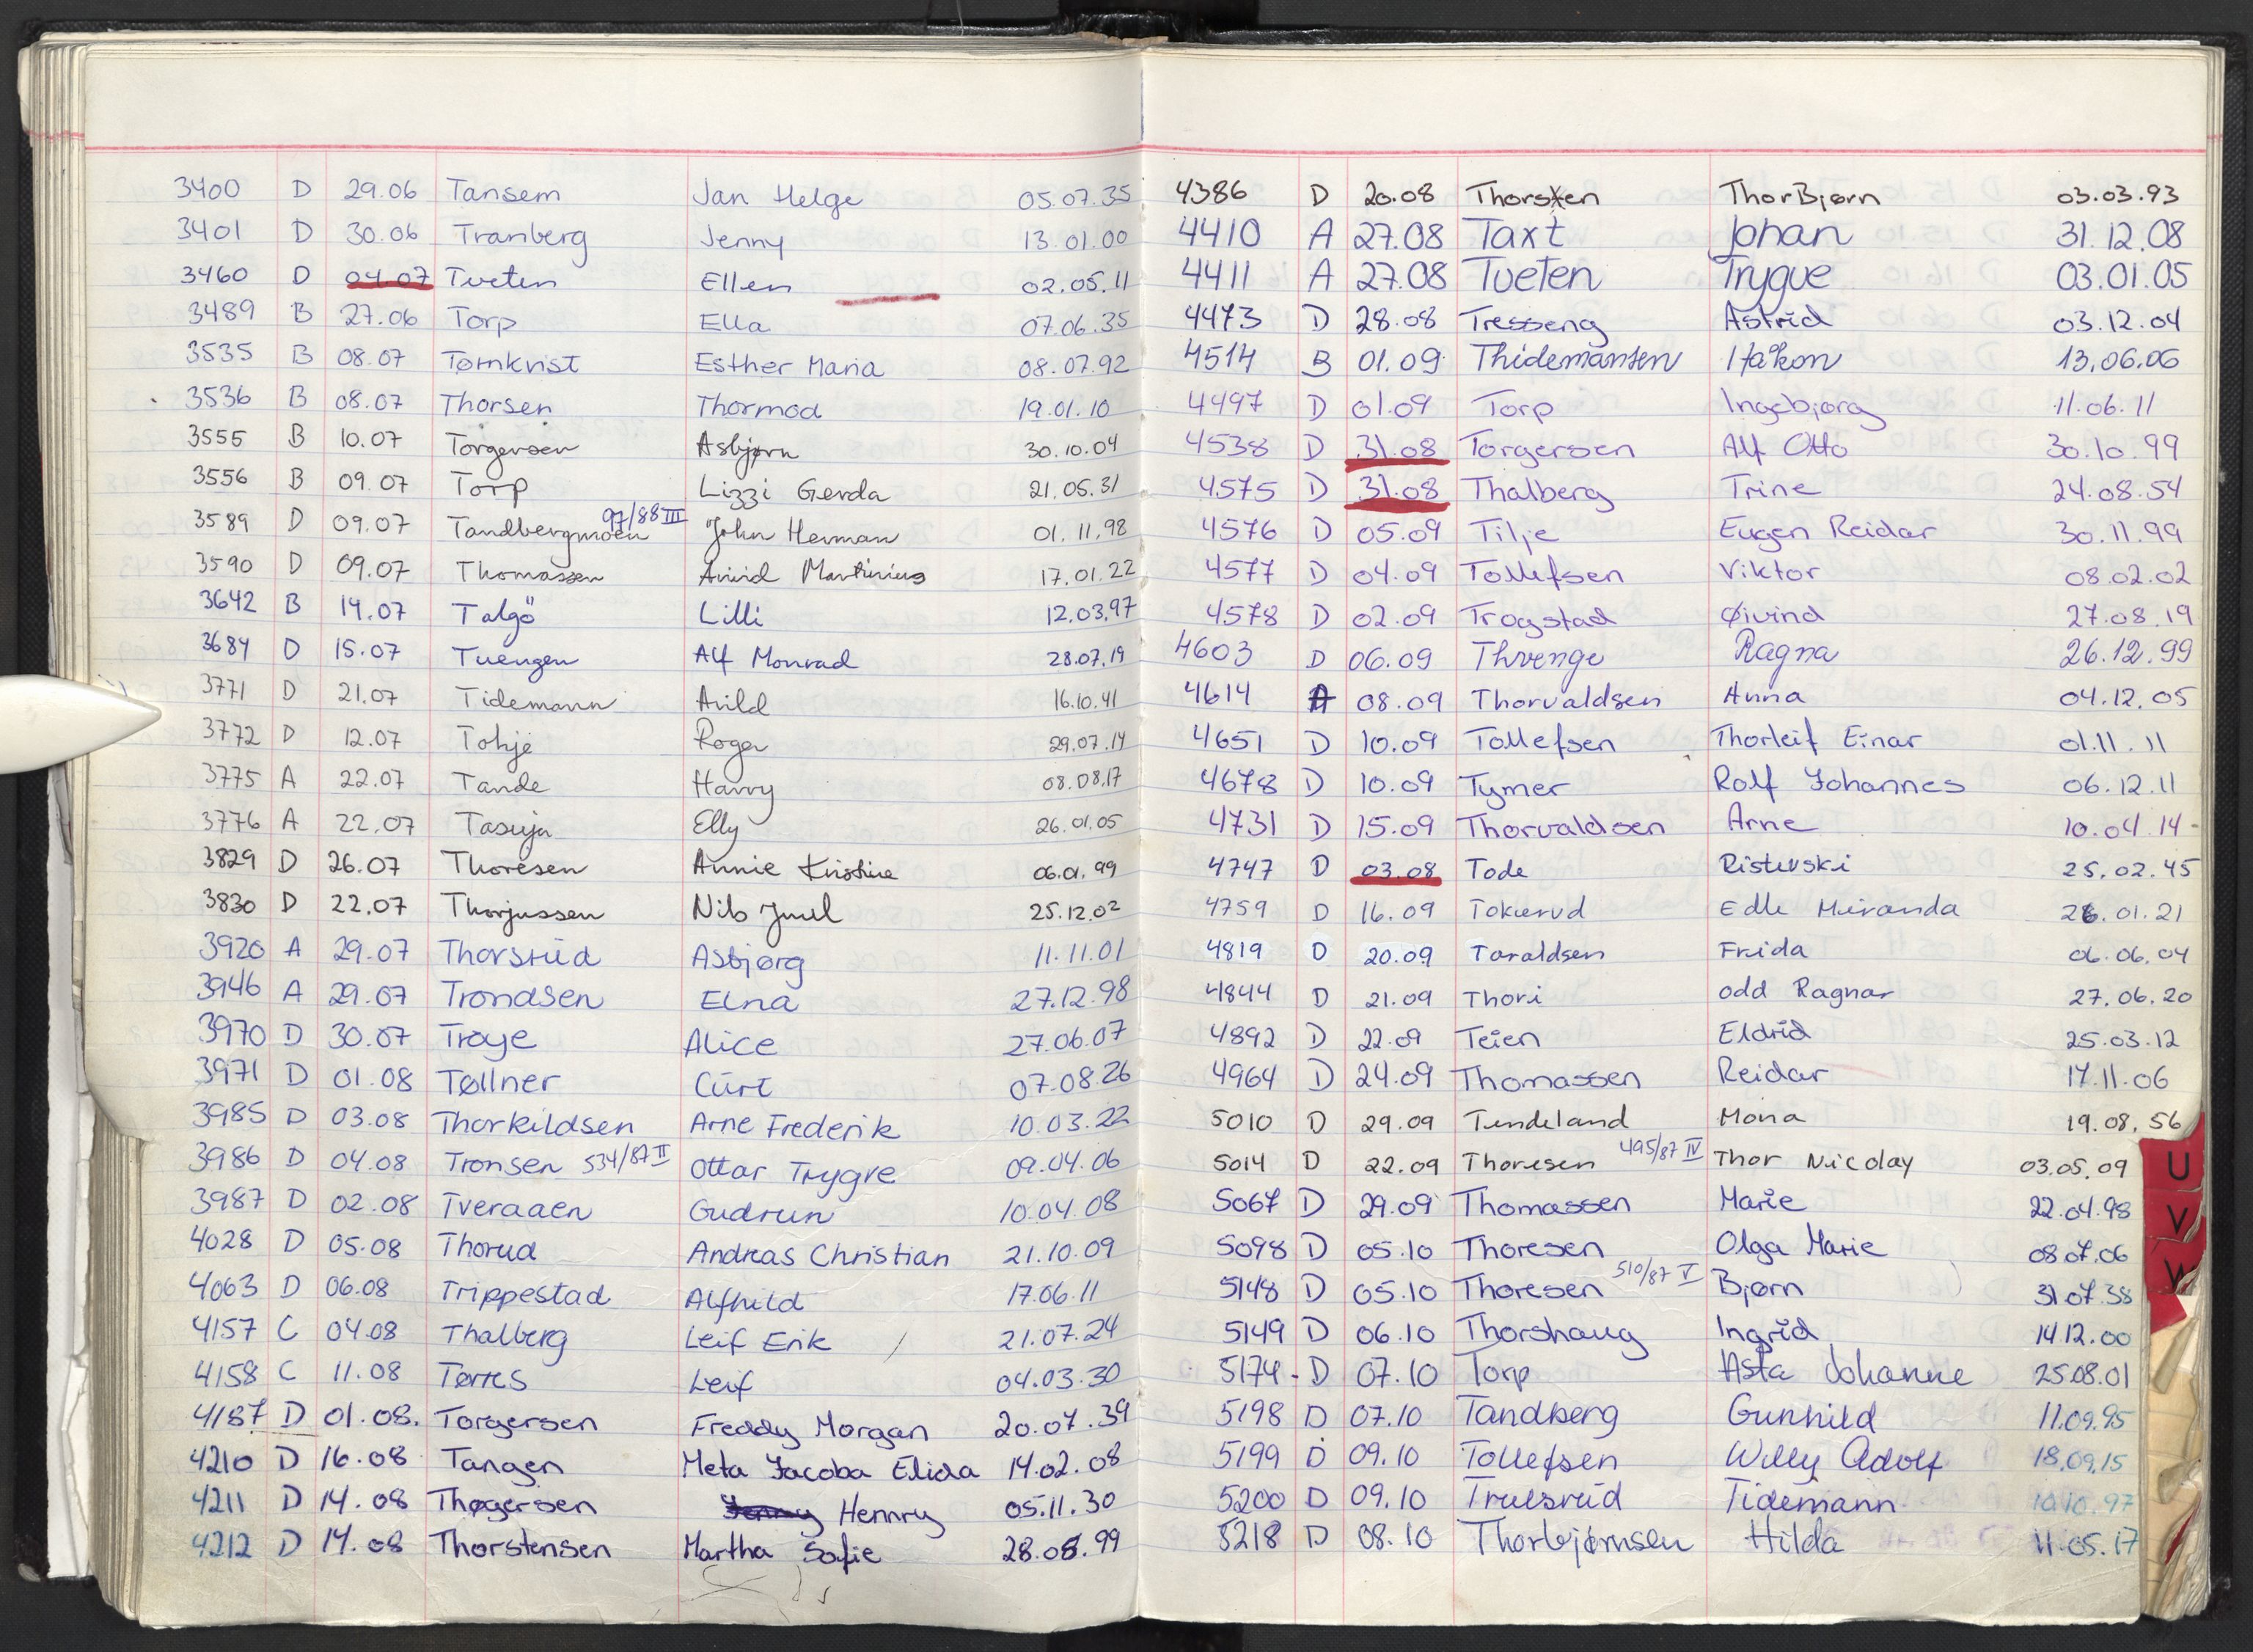 3400 D 29.06 Tansem Jan Helge 05.07.35
3401 D 30.06 Tranberg Jenny 13.01.00
3460 D 04.07 Tveten Ellen 02.05.11
3489 B 27.06 Torp Ella 07.06.35
3535 B 08.07 Tørnkvist Esther Maria 08.07.92
3536 B 08.07 Thorsen Thormod 19.01.10
3555 B 10.07 Torgersen Asbjørn 30.10.04
3556 B 09.07 Torp Lizzi Gerda 21.05.31
3589 D 09.07 Tandbergmoen 97/88 III John Herman 01.11.98
3590 D 09.07 Thomassen Arvid Martinius 17.01.22
3642 B 14.07 Talgö Lilli 12.03.97
3684 D 15.07 Tuengen Alf Monrad 28.07.19
3771 D 21.07 Tidemann Arild 16.10.41
3772 D 12.07 Tohje Roger 29.07.14
3775 A 22.07 Tande Harry 08.08.17
3776 A 22.07 Elly 26.01.05
3829 D 26.07 Thoresen Annie Kristine 06.01.99
3830 D 22.07 Thorjussen Nils Juul 25.12.02
3920 A 29.07 Thorsrud Asbjørg 11.11.01
3946 A 29.07 Trondsen Elna 27.12.98
3970 D 30.07 Troye Alice 27.06.07
3971 D 01.08 Tøllner Curt 07.08.26
3985 D 03.08 Thorkildsen Arne Frederik 10.03.22
3986 D 04.08 Tronsen 534/87 II Ottar Trygve 09.04.06
3987 D 02.08 Tveraaen Gudrun 10.04.08
4028 D 05.08 Thorud Andreas Christian 21.10.09
4063 D 06.08 Trippestad Alfhild 17.06.11
4157 C 04.08 Thalberg Leif Erik 21.07.24
4158 C 11.08 Tørres Leif 04.03.30
4187 D 01.08. Torgersen Freddy Morgan 20.07.39
4210 D 16.08 Tangen Meta Jacoba Elida 14.02.08
4211 D 14.08 Thøgersen Jenny Hennry 05.11.30
4212 D 14.08 Thorstensen Martha Sofie 28.08.99
4386 D 20.08 Thorsten ThorBjørn 03.03.93
4410 A 27.08 Taxt Johan 31.12.08
4411 A 27.08 Tveten Trygve 03.01.05
4473 D 28.08 Tresseng Astrid 03.12.04
4514 B 01.09 Thidemansen Håkon 13.06.06
4497 D 01.09 Torp Ingebjørg 11.06.11
4538 D 31.08 Torgersen Alf Otto 30.10.99
4575 D 31.08 Thalberg Trine 24.08.54
4576 D 05.09 Tilje Eugen Reidar 30.11.99
4577 D 04.09 Tollefsen Viktor 08.02.02
4578 D 02.09 Trogstad Øivind 27.08.19
4603 D 06.09 Thvenge Ragna 26.12.99
4614 A 08.09 Thorvaldsen Anna 04.12.05
4651 D 10.09 Tollefsen Thorleif Einar 01.11.11
4678 D 10.09 Tymer Rolf Johannes 06.12.11
4731 D 15.09 Thorvaldsen Arne 10.04.14
4747 D 03.08 Tode Ristevski 25.02.45
4759 D 16.09 Tokerud Edle Miranda 26.01.21
4819 D 20.09 Taraldsen Frida 06.06.04
4844 D 21.09 Thori Odd Ragnar 27.06.20
4892 D 22.09 Teien Eldrid 25.03.12
4964 D 24.09 Thomassen Reidar 17.11.06
5010 D 29.09 Tendeland Mona 19.08.56
5014 D 22.09 Thoresen 495/87 IV Thor Nicolay 03.05.09
5067 D 29.09 Thomassen Marie 22.04.98
5098 D 05.10 Thoresen Olga Marie 08.07.06
5148 D 05.10 Thoresen 510/87 V Bjørn 31.07.38
5149 D 06.10 Thorshaug Ingrid 14.12.00
5174 - D 07.10 Torp Asta Johanne 25.08.01
5198 D 07.10 Tandberg Gunhild 11.09.95
5199 D 09.10 Tollefsen Willy Adolf 18.09.15
5200 D 09.10 Trulsrud Tidemann 10.10.97
5218 D 08.10 Thorbjørnsen Hilda 11.05.17
U
V
W